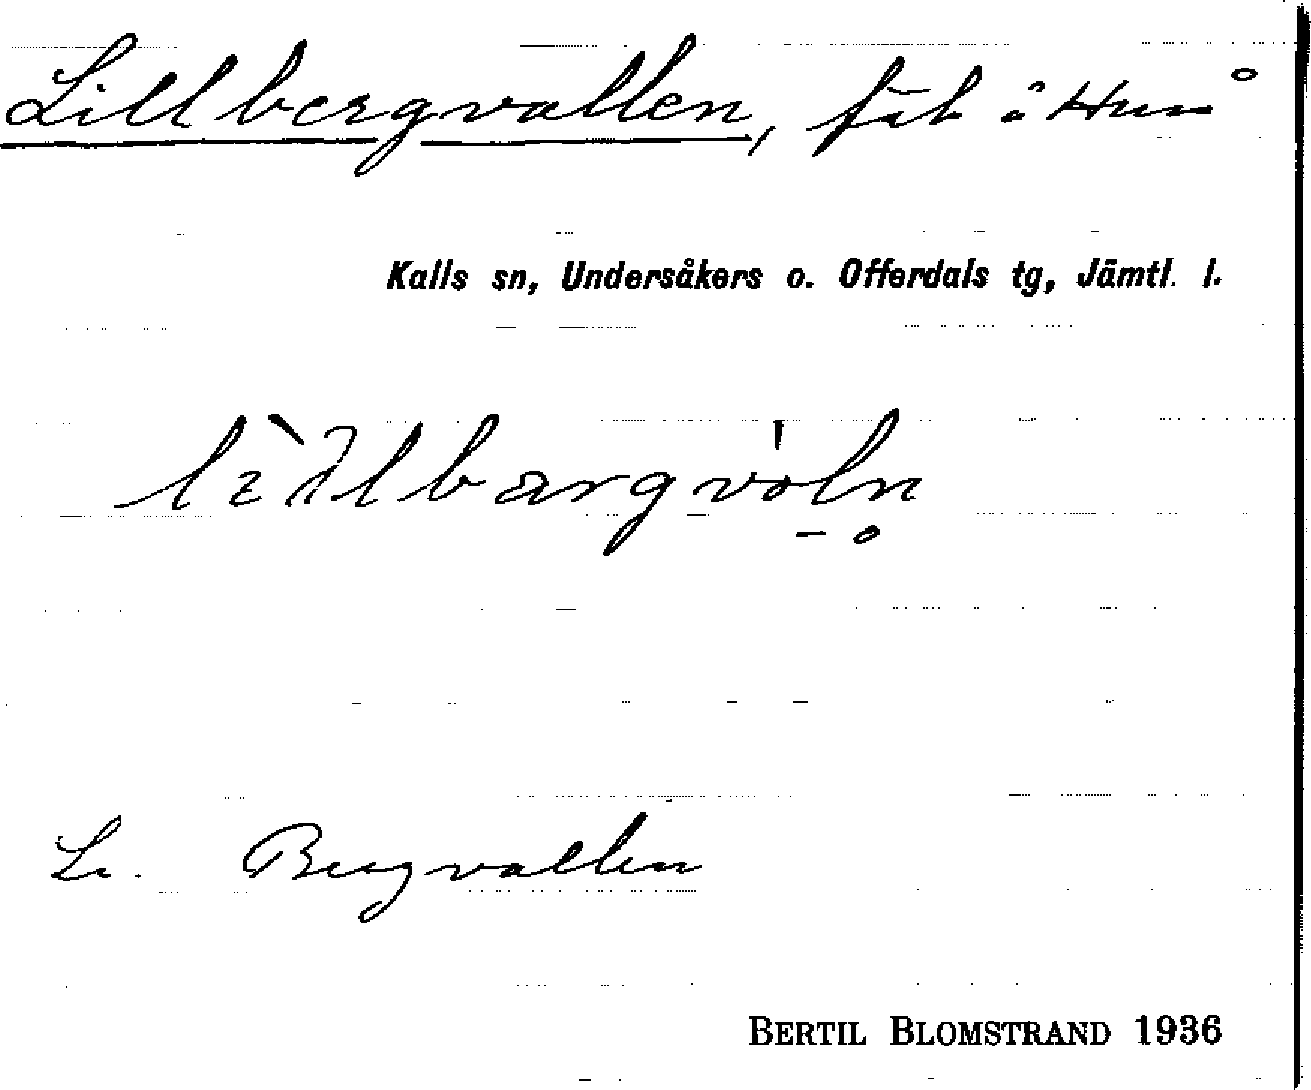 Lillbergvallen, fäb å Huså
Kalls sn, Undersåkers o. Offerdals tg, Jämtl. l.
L. Bergvallen
BERTIL BLOMSTRAND 1936